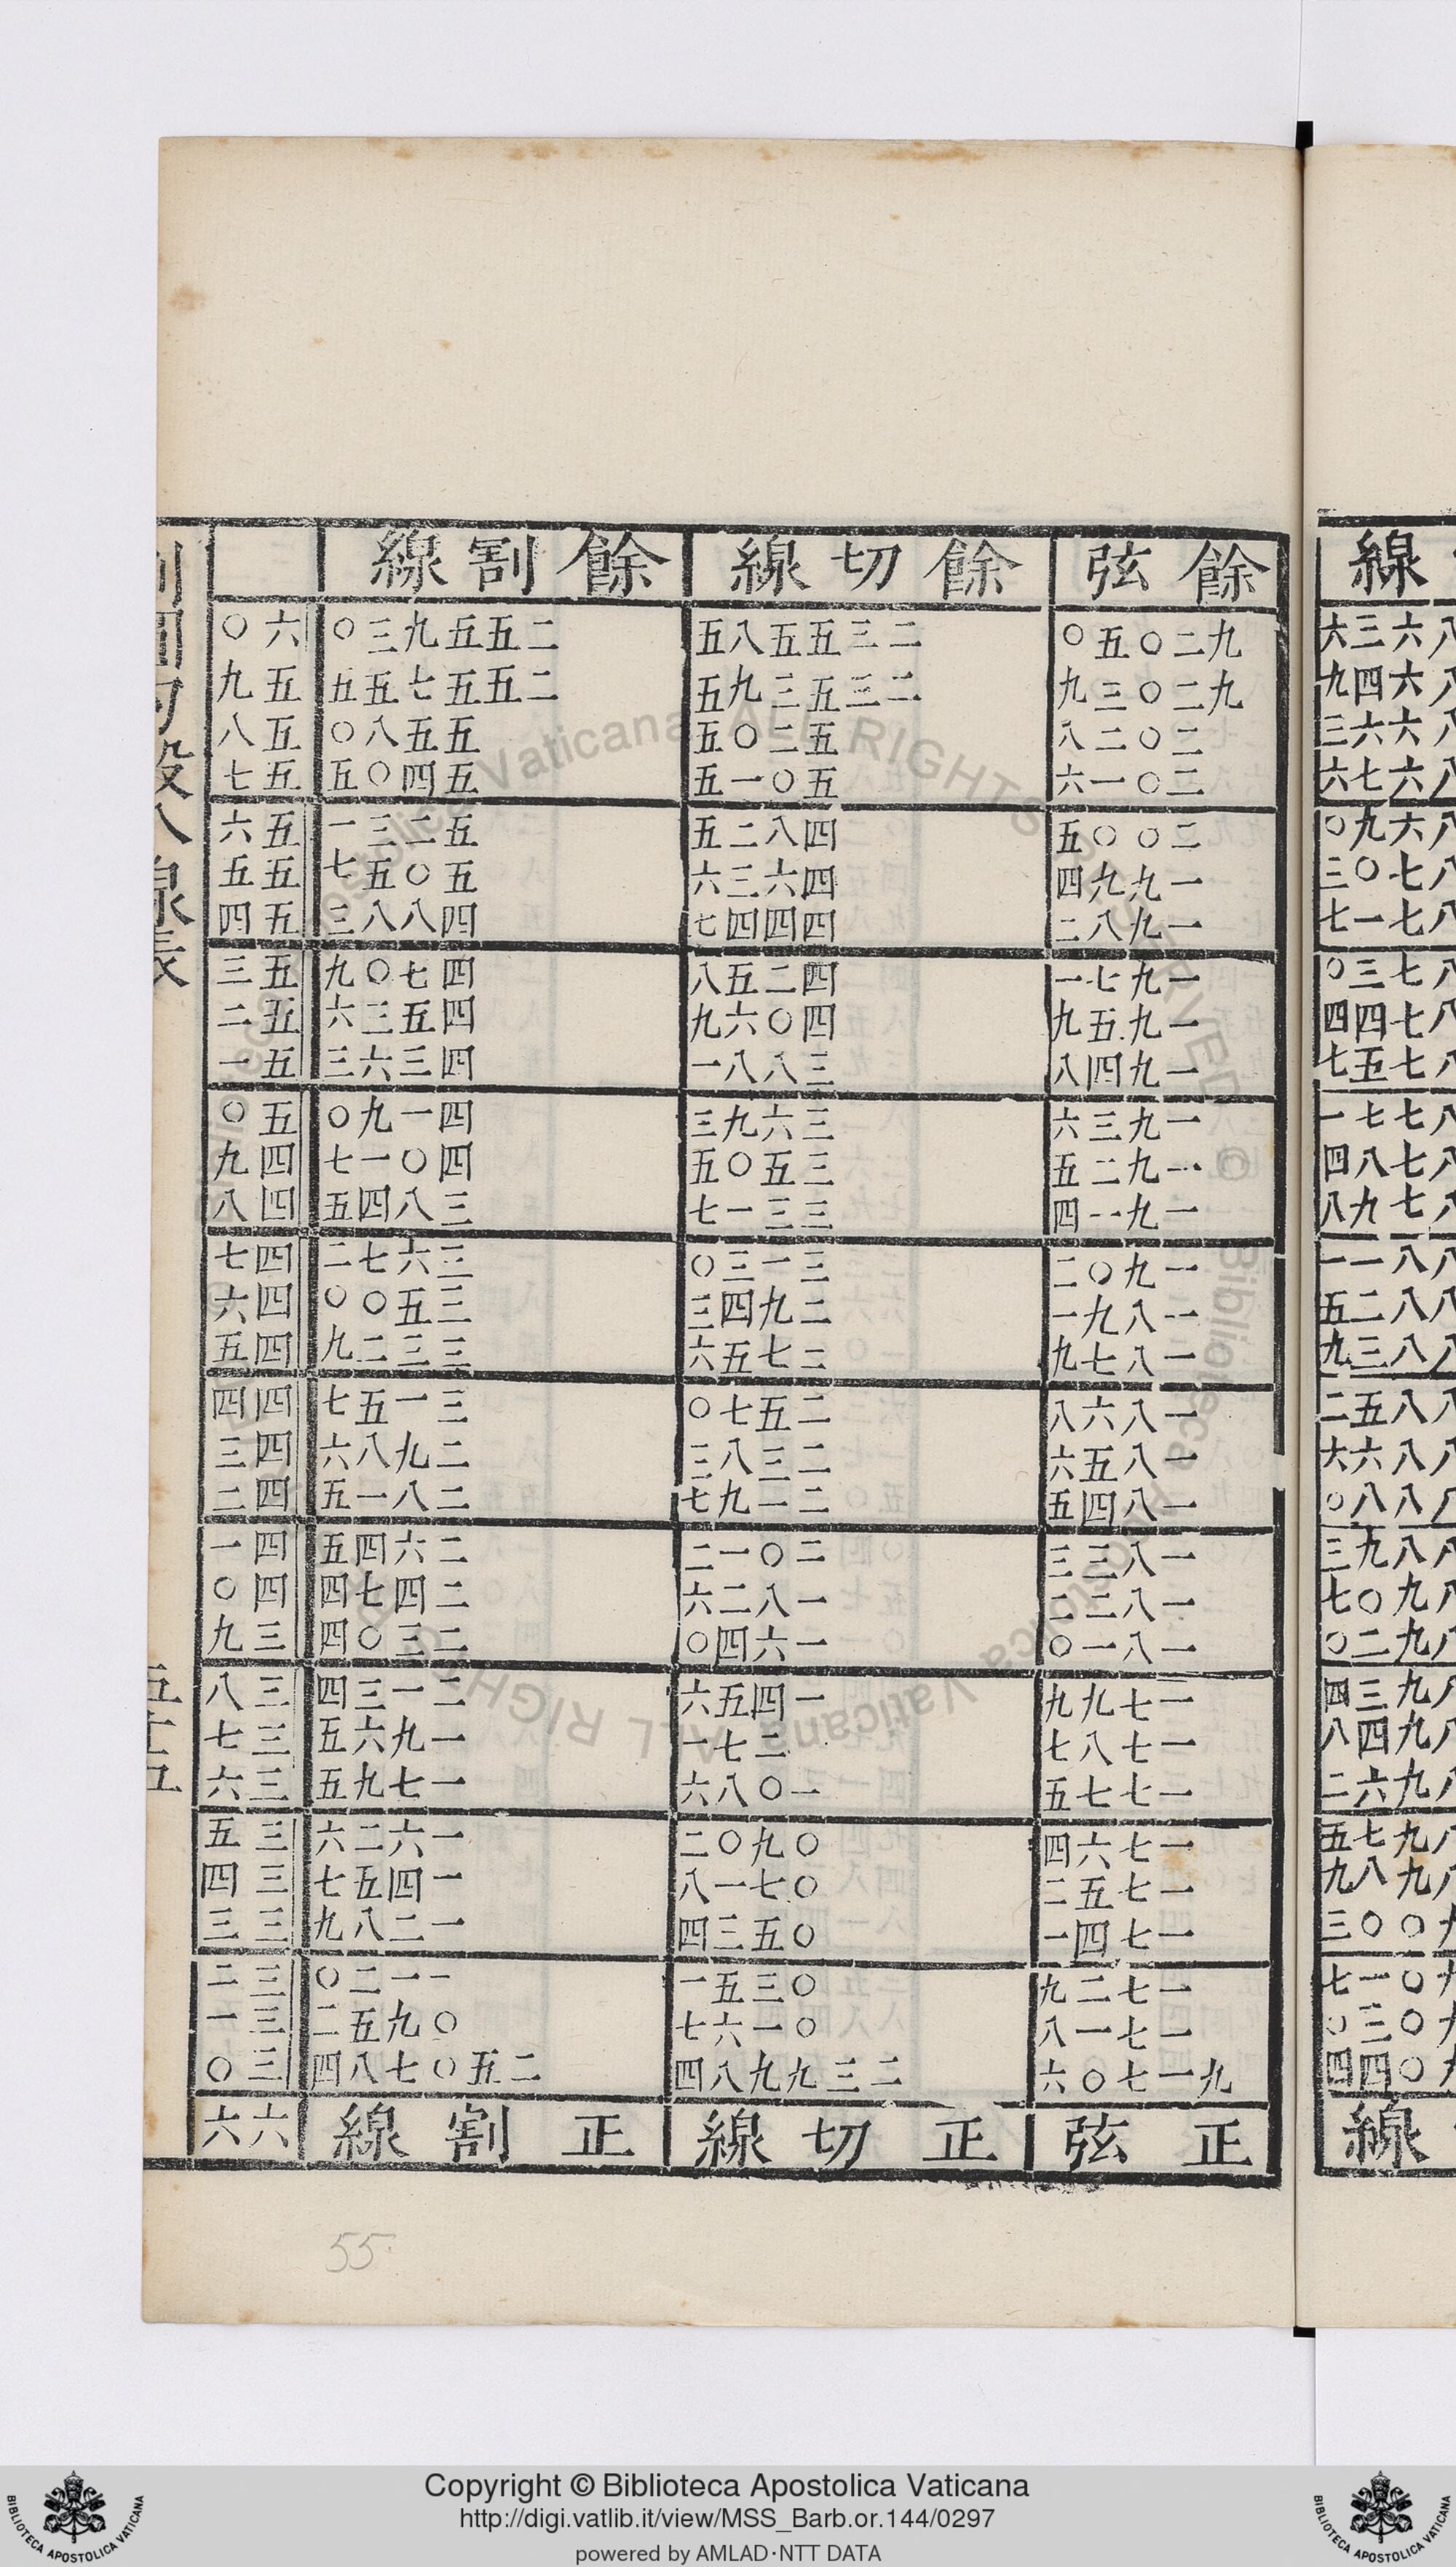 線
六三六
六四九
六六三
六七六
六九〇
七〇三
七一七
七三〇
七四四
七五七
七七一
七八四
七九八
八一一
八二五
八三九
八五二
八六六
八八〇
八九三
九〇七
九二〇
九三四
九四八
九六二
九七五
九八九
〇〇三
〇一七
〇三〇
〇四四
線
餘弦 餘切線 餘割線
九二〇五〇 二三五五八五 二五五九三〇 六〇
九二〇三九 二三五三九五 二五五七五五 五九
二〇二八 五二〇五 五五八〇 五八
二〇一六 五〇一五 五四〇五 五七
二〇〇五 四八二五 五二三一 五六
一九九四 四六三六 五〇五七 五五
一九八二 四四四七 四八八三 五四
一九七一 四二五八 四七〇九 五三
一九五九 四〇六九 四五三六 五二
一九四八 三八八一 四三六三 五一
一九三六 三六九三 四一九〇 五〇
一九二五 三五〇五 四〇一七 四九
一九一四 三三一七 三八四五 四八
一九〇二 三一三〇 三六七二 四七
一八九一 二九四三 三五〇〇 四六
一八七九 二七五六 三三二九 四五
一八六八 二五七〇 三一五七 四四
一八五六 二三八三 二九八六 四三
一八四五 二一九七 二八一五 四二
一八三三 二〇一二 二六四五 四一
一八二二 一八二六 二四七四 四〇
一八一〇 一六四〇 二三〇四 三九
一七九九 一四五六 二一三四 三八
一七八七 二七一 一九六五 三七
一七七五 一〇八六 一七九五 三六
一七六四 〇九〇二 一六二六 三五
一七五二 〇七一八 一四五七 三四
一七四一 〇五三四 一二八九 三三
一七二九 〇三五一 一一二〇 三二
一七一八 〇一六七 〇九五二 三一
九一七〇六 二三九九八四 二五〇七八四 三〇
正弦 正切線 正割線 六六
割圓勾股八線表
五十五
55
Copyright © Biblioteca Apostolica Vaticana
http://digi.vatlib.it/view/MSS_Barb.or.144/0297
powered by AMLAD·NTT DATA